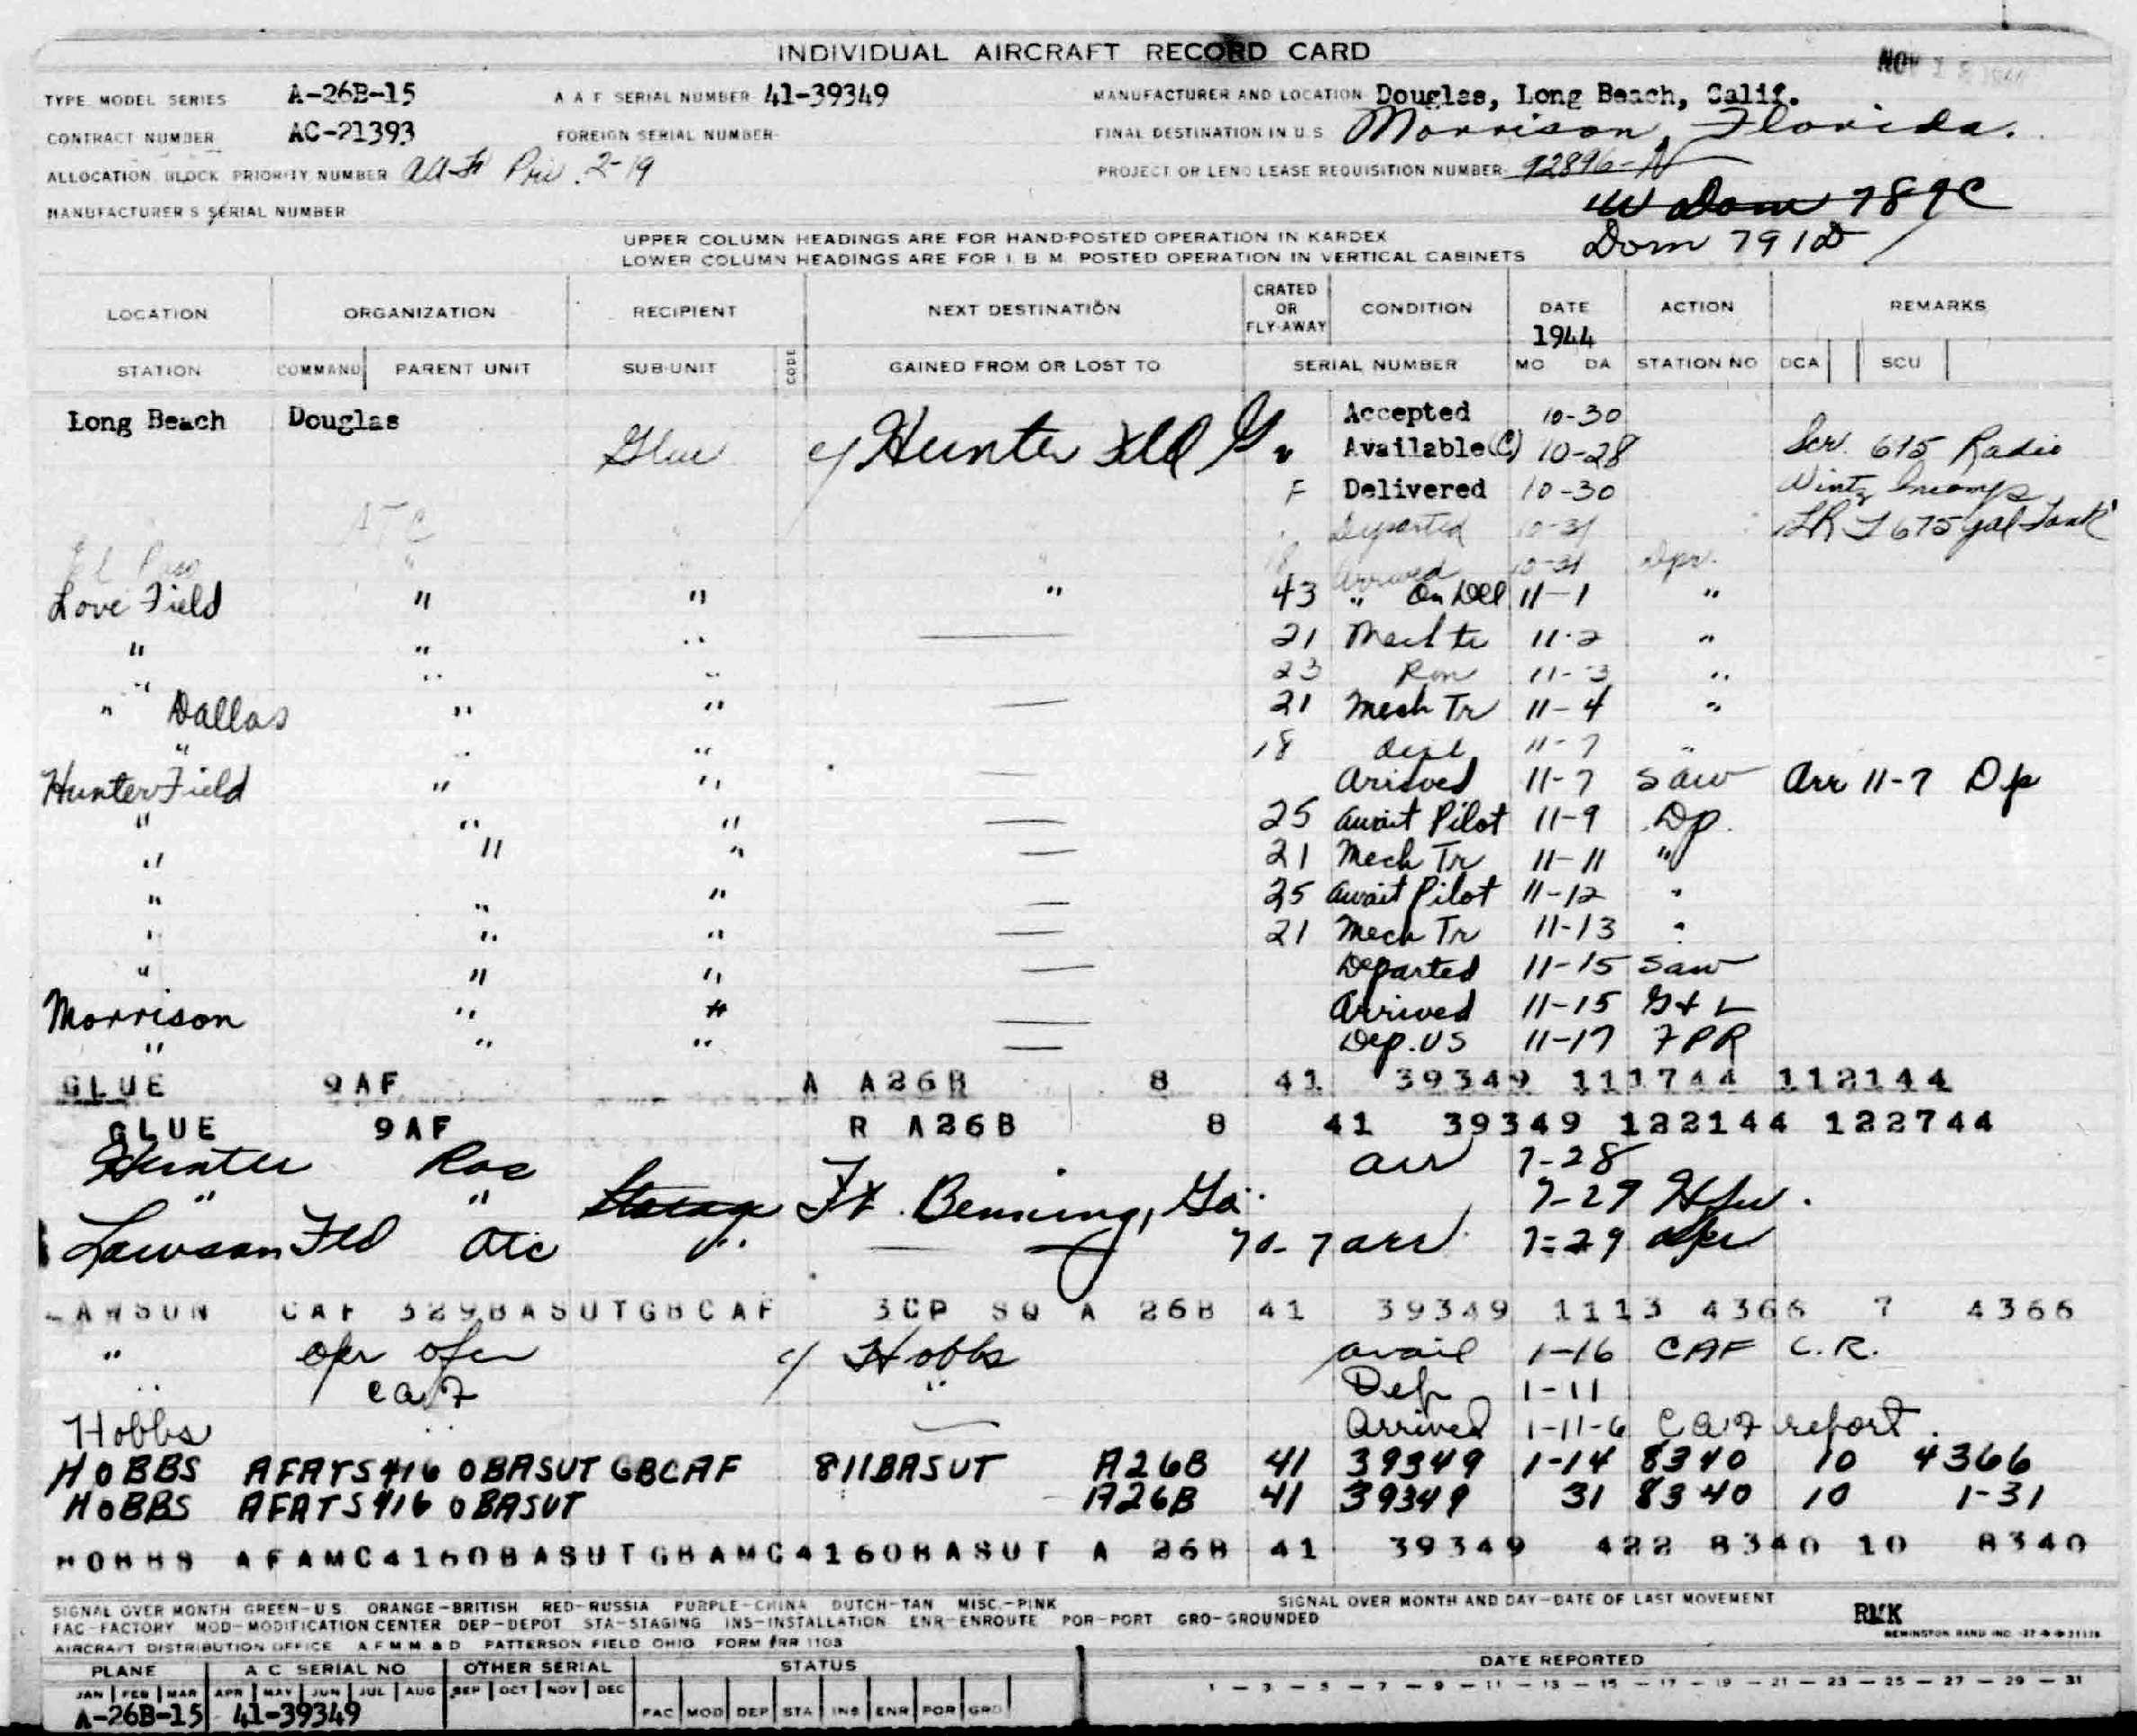 INDIVIDUAL AIRCRAFT RECORD CARD
NOV
TYPE MODEL SERIES A-26B-15 A A F SERIAL NUMBER 41-39349 MANUFACTURER AND LOCATION Douglas, Long Beach, Calif.
CONTRACT NUMBER AC-21393 FOREIGN SERIAL NUMBER FINAL DESTINATION IN U.S. Morrison, Florida.
ALLOCATION BLOCK PRIORITY NUMBER Pri. 2-19 PROJECT OR LEND LEASE REQUISITION NUMBER 92896-N
MANUFACTURER S SERIAL NUMBER Dom 789C
UPPER COLUMN HEADINGS ARE FOR HAND-POSTED OPERATION IN KARDEX
LOWER COLUMN HEADINGS ARE FOR I. B. M. POSTED OPERATION IN VERTICAL CABINETS
Dom 791D
LOCATION ORGANIZATION RECIPIENT NEXT DESTINATION CRATED OR FLY-AWAY CONDITION DATE ACTION REMARKS
1944
STATION COMMAND PARENT UNIT SUB-UNIT CODE GAINED FROM OR LOST TO SERIAL NUMBER MO DA STATION NO DCA SCU
Long Beach Douglas Accepted 10-30
Glue Hunter Fld Ga Available(C) 10-28 Scr. 695 Radio
F Delivered 10-30
ATC Departed 10-31 675 gal Tank
El Paso " " " 18 Arrived 10-31 Dpr.
Love Field " " " 43 " On Del 11-1 "
" " " — 21 Mech tr 11-2 "
" " " 23 Ron 11-3 "
" Dallas " " — 21 Mech Tr 11-4 "
" " " 18 11-7 "
Hunter Field " " — Arrived 11-7 Saw Arr 11-7 Dp
" " " — 25 Await Pilot 11-9 Dp.
" " " — 21 Mech Tr 11-11 "
" " " — 25 Await Pilot 11-12 "
" " " — 21 Mech Tr 11-13 "
" " " — Departed 11-15 Saw
Morrison " " — Arrived 11-15 G+L
" " " — Dep. US 11-17 FPR
GLUE 9AF A A26B 8 41 39349 111744 112144
GLUE 9AF R A26B 8 41 39349 122144 122744
Hunter arr 7-28
" " Ft. Benning, Ga. 7-29
Lawson Fld Atc " — 70-7 arr 7-29
LAWSON CAF 329BASUTGBCAF 3CP SQ A 26B 41 39349 1113 4366 7 4366
" opr Hobbs avail 1-16 CAF C.R.
" CAF " Dep 1-11
Hobbs — Arrived 1-11-6 CAF report.
HOBBS AFATS4160BASUTGBCAF 811BASUT A26B 41 39349 1-14 8340 10 4366
HOBBS AFATS4160BASUT A26B 41 39349 31 8340 10 1-31
HOBBS AFAMC4160BASUTGBAMC4160BASUT A 26B 41 39349 422 8340 10 8340
SIGNAL OVER MONTH GREEN-U.S. ORANGE-BRITISH RED-RUSSIA PURPLE-CHINA DUTCH-TAN MISC.-PINK SIGNAL OVER MONTH AND DAY-DATE OF LAST MOVEMENT
FAC-FACTORY MOD-MODIFICATION CENTER DEP-DEPOT STA-STAGING INS-INSTALLATION ENR-ENROUTE POR-PORT GRO-GROUNDED RMK
AIRCRAFT DISTRIBUTION OFFICE A.F.M.M. & D PATTERSON FIELD OHIO FORM #RR 1103 REMINGTON RAND INC.
PLANE A C SERIAL NO. OTHER SERIAL STATUS DATE REPORTED
JAN FEB MAR APR MAY JUN JUL AUG SEP OCT NOV DEC 1 - 3 - 5 - 7 - 9 - 11 - 13 - 15 - 17 - 19 - 21 - 23 - 25 - 27 - 29 - 31
A-26B-15 41-39349 FAC MOD DEP STA INS ENR POR GRO